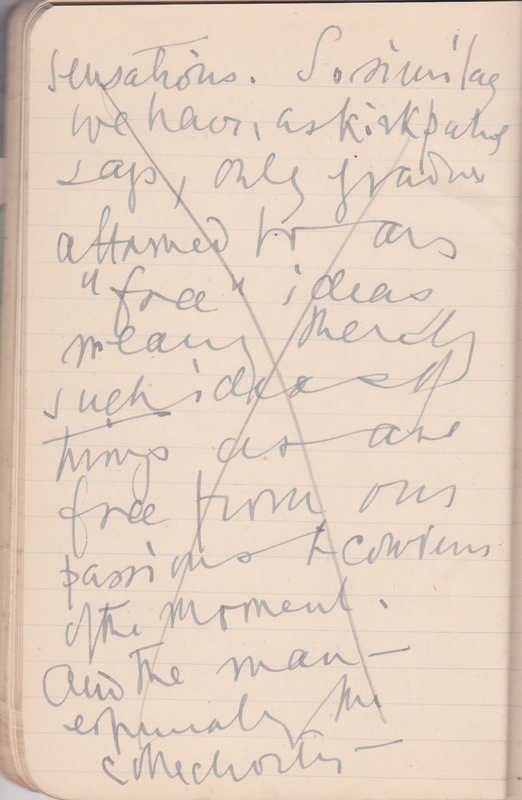 sensations. So similarly
we have, as Kirkpatrick
says, only gradually
attained to our
"free" ideas
meaning thereby
such ideas of
things as are
free from our
passions &
of the moment.
And the man —
especially the